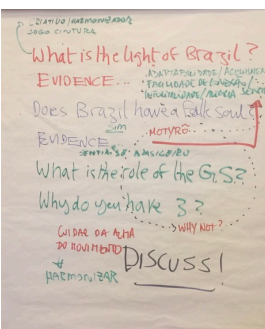 CRIATIVO/HARMONIZADOR
JOGO CINTURA
What is the light of Brazil?
EVIDENCE...
ADAPTABILIDADE/
FACILIDADE DE
INFORMALIDADE/
Does Brazil have a folk soul?
SIM
EVIDENCE
MOTYRÔ
SENTIR-SE BRASILEIRO
What is the role of the G.S?
Why do you have 3?
WHY NOT?
CUIDAR DA ALMA
DO MOVIMENTO
#
HARMONIZAR
DISCUSS!